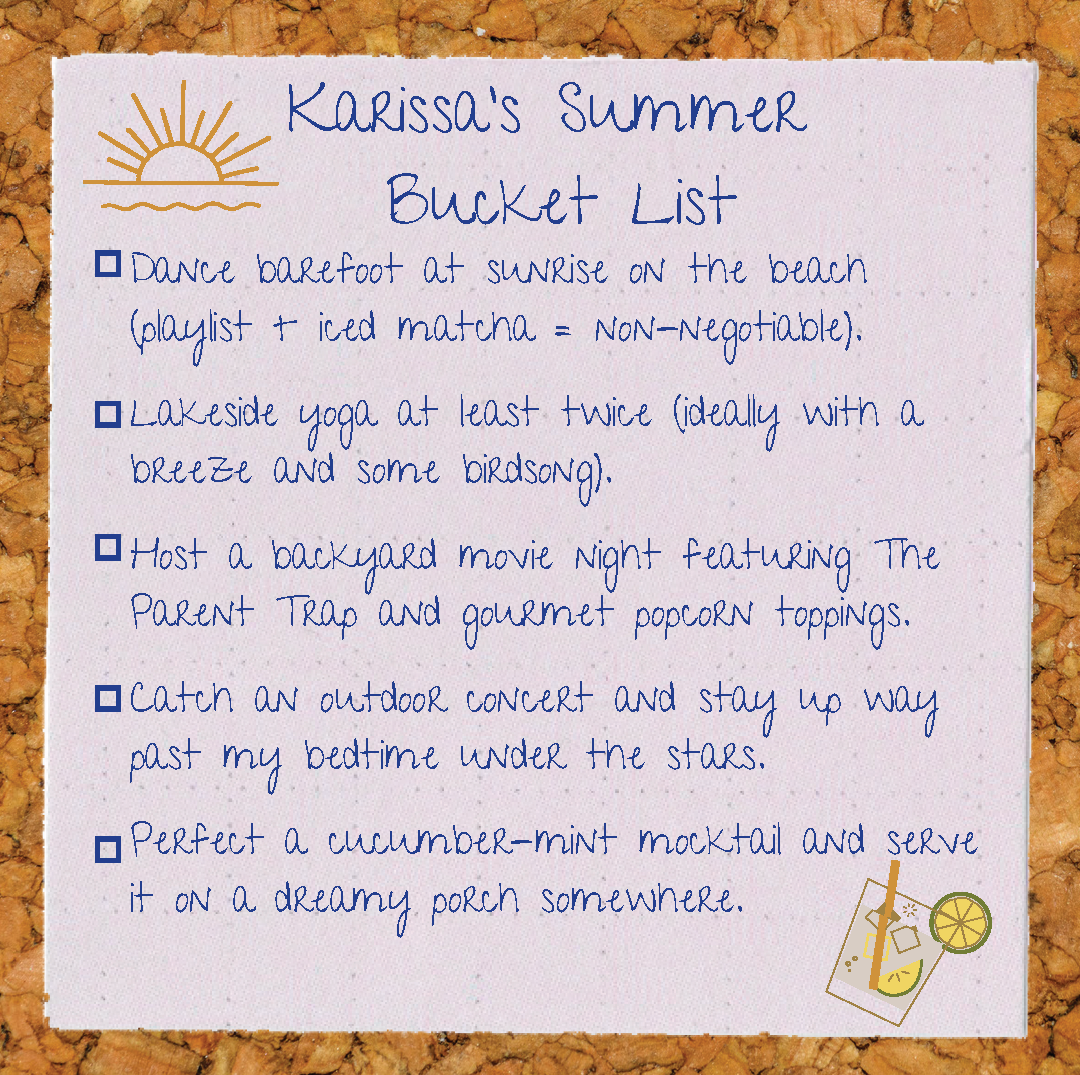 Karissa's Summer
Bucket List
Dance barefoot at sunrise on the beach
(playlist + iced matcha = non-negotiable).
Lakeside yoga at least twice (ideally with a
breeze and some birdsong).
Host a backyard movie night featuring The
Parent Trap and gourmet popcorn toppings.
Catch an outdoor concert and stay up way
past my bedtime under the stars.
Perfect a cucumber-mint mocktail and serve
it on a dreamy porch somewhere.